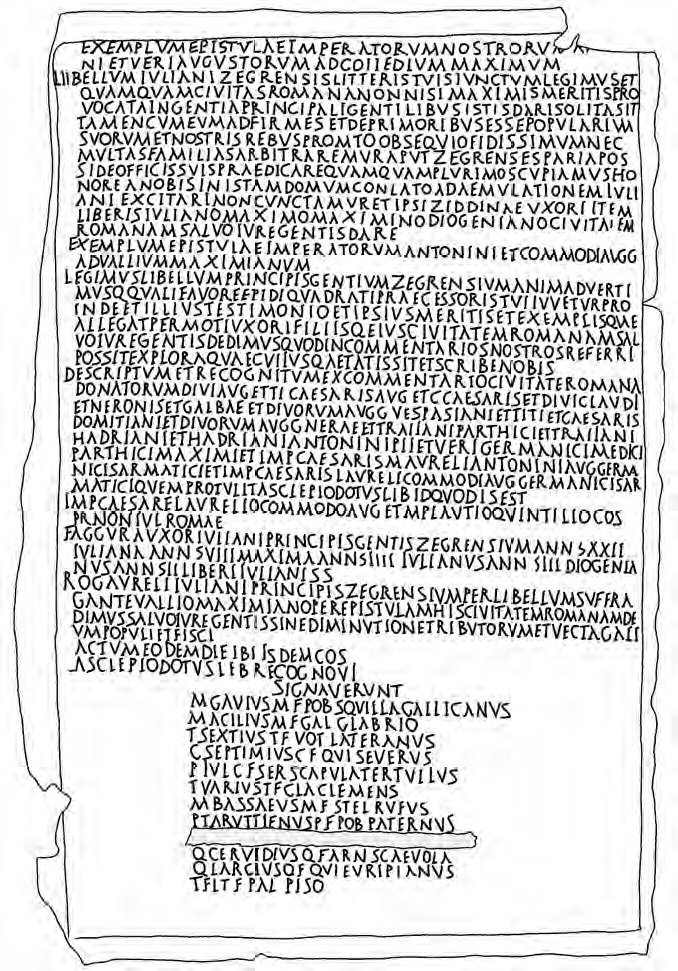 EXEMPLVMEPISTVLAEIMPERATORVMNOSTRORVM
NIETVERIAVGVSTORVMADCOIIEDIVMMAXIMVM
LIIBELLVMIVLIANIZEGRENSISLITTERISTVISIVNCTVMLEGIMVSET
QVAMQVAMCIVITASROMANANONNISIMAXIMISMERITISPRO
VOCATAINGENTIAPRINCIPALIGENTILIBVSISTISDARISOLITASIT
TAMENCVMEVMADFIRMESETDEPRIMORIBVSESSEPOPVLARIVM
SVORVMETNOSTRISREBVSPROMTOOBSEQVIOFIDISSIMVMNEC
MVLTASFAMILIASARBITRAREMVRAPVTZEGRENSESPARIAPOS
SIDEOFFICISSVISPRAEDICAREQVAMQVAMPLVRIMOSCVPIAMVSHO
NOREANOBISINISTAMDOMVMCONLATOADAEMVLATIONEMIVLI
ANIEXCITARINONCVNCTAMVRETIPSIZIDDINAEVXORIITEM
LIBERISIVLIANOMAXIMOMAXIMINODIOGENIANOCIVITATEM
ROMANAMSALVOIVREGENTISDARE
EXEMPLVMEPISTVLAEIMPERATORVMANTONINIETCOMMODIAVGG
ADVALLIVMMAXIMIANVM
LEGIMVSLIBELLVMPRINCIPISGENTIVMZEGRENSIVMANIMADVERTI
MVSQQVALIFAVOREEPIDIQVADRATIPRAECESSORISTVIIVVETVRPRO
INDEETILLIVSTESTIMONIOETIPSIVSMERITISETEXEMPLISQVAE
ALLEGATPERMOTIVXORIFILIISQEIVSCIVITATEMROMANAMSAL
VOIVREGENTISDEDIMVSQVODINCOMMENTARIOSNOSTROSREFERRI
POSSITEXPLORAQVAECVIIVSQAETATISSITETSCRIBENOBIS
DESCRIPTVMETRECOGNITVMEXCOMMENTARIOCIVITATEROMANA
DONATORVMDIVIAVGETTICAESARISAVGETCCAESARISETDIVICLAVDI
ETNERONISETGALBAEETDIVORVMAVGGVESPASIANIETTITIETCAESARIS
DOMITIANIETDIVORVMAVGGNERAEETTRAIIANIPARTHICIETTRAIIANI
HADRIANIETHADRIANIANTONINIPIIETVERIGERMANICIMEDICI
PARTHICIMAXIMIETIMPCAESARISMAVRELIANTONINIAVGGERM
NICISARMATICIETIMPCAESARISLAVRELICOMMODIAVGGERMANICISAR
MATICIQVEMPROTVLITASCLEPIODOTVSLIBIDQVODISEST
IMPCAESARELAVRELIOCOMMODOAVGETMPLAVTIOQVINTILIOCOS
PRNONIVLROMAE
FAGGVRAVXORIVLIANIPRINCIPISGENTISZEGRENSIVMANNSXXII
IVLIANAANNSVIIIMAXIMAANNSIIII IVLIANVSANNSIIIIDIOGENIA
NVSANNSIILIBERIIVLIANISS
ROGAVRELIIVLIANIPRINCIPISZEGRENSIVMPERLIBELLVMSVFFRA
GANTEVALLIOMAXIMIANOPEREPISTVLAMHISCIVITATEMROMANAMDE
DIMVSSALVOIVREGENTISSINEDIMINVTIONETRIBVTORVMETVECTAGALI
VMPOPVLIETFISCI
ACTVMEODEMDIEIBIISDEMCOS
ASCLEPIODOTVSLEBRECOGNOVI
SIGNAVERVNT
MGAVIVSMFPOBSQVILLAGALLICANVS
MACILIVSMFGALGLABRIO
TSEXTIVSTFVOTLATERANVS
CSEPTIMIVSCFQVISEVERVS
PIVLCFSERSCAPVLATERTVLLVS
TVARIVSTFCLACLEMENS
MBASSAEVSMFSTELRVFVS
PTARVTTIENVSPFPOBPATERNVS
QCERVIDIVSQFARNSCAEVOLA
QLARCIVSQFQVIEVRIPIANVS
TFLTFPALPISO